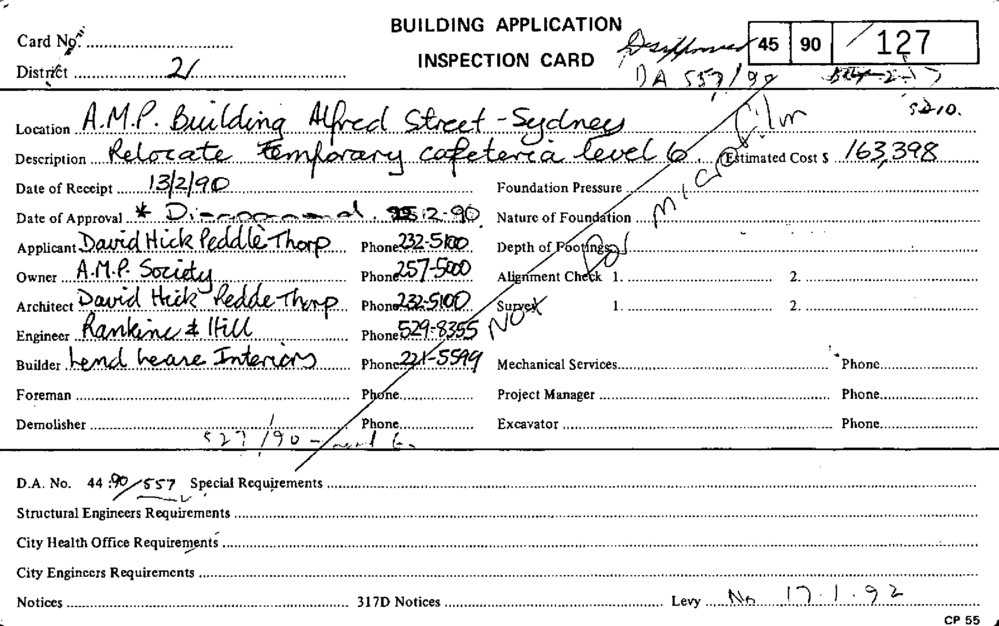 BUILDING APPLICATION
INSPECTION CARD
Card No. 45 90 / 127
District 21 DA 557/90
Location A.M.P. Building Alfred Street - Sydney
Description Relocate Temporary cafeteria level 6 Estimated Cost $ 163,398
Not for microfilm
Date of Receipt 13/2/90 Foundation Pressure
Date of Approval * 2-90 Nature of Foundation
Applicant David Hick Peddle Thorp Phone 232-5100 Depth of Footings
Owner A.M.P. Society Phone 257-5000 Alignment Check 1. 2.
Architect David Hick Pedde Thorp Phone 232-5100 Survey 1. 2.
Engineer Rankine & Hill Phone 529-8355
Builder Lend Lease Interiors Phone 221-5599 Mechanical Services Phone
Foreman Phone Project Manager Phone
Demolisher Phone Excavator Phone
527/90
D.A. No. 44 :90/557 Special Requirements
Structural Engineers Requirements
City Health Office Requirements
City Engineers Requirements
Notices 317D Notices Levy No 17.1.92
CP 55